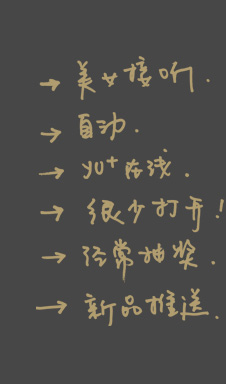 → 美女接听.
→ 自动.
→ 40+在线.
→ 很少打开!
→ 经常抽奖.
→ 新品推送.